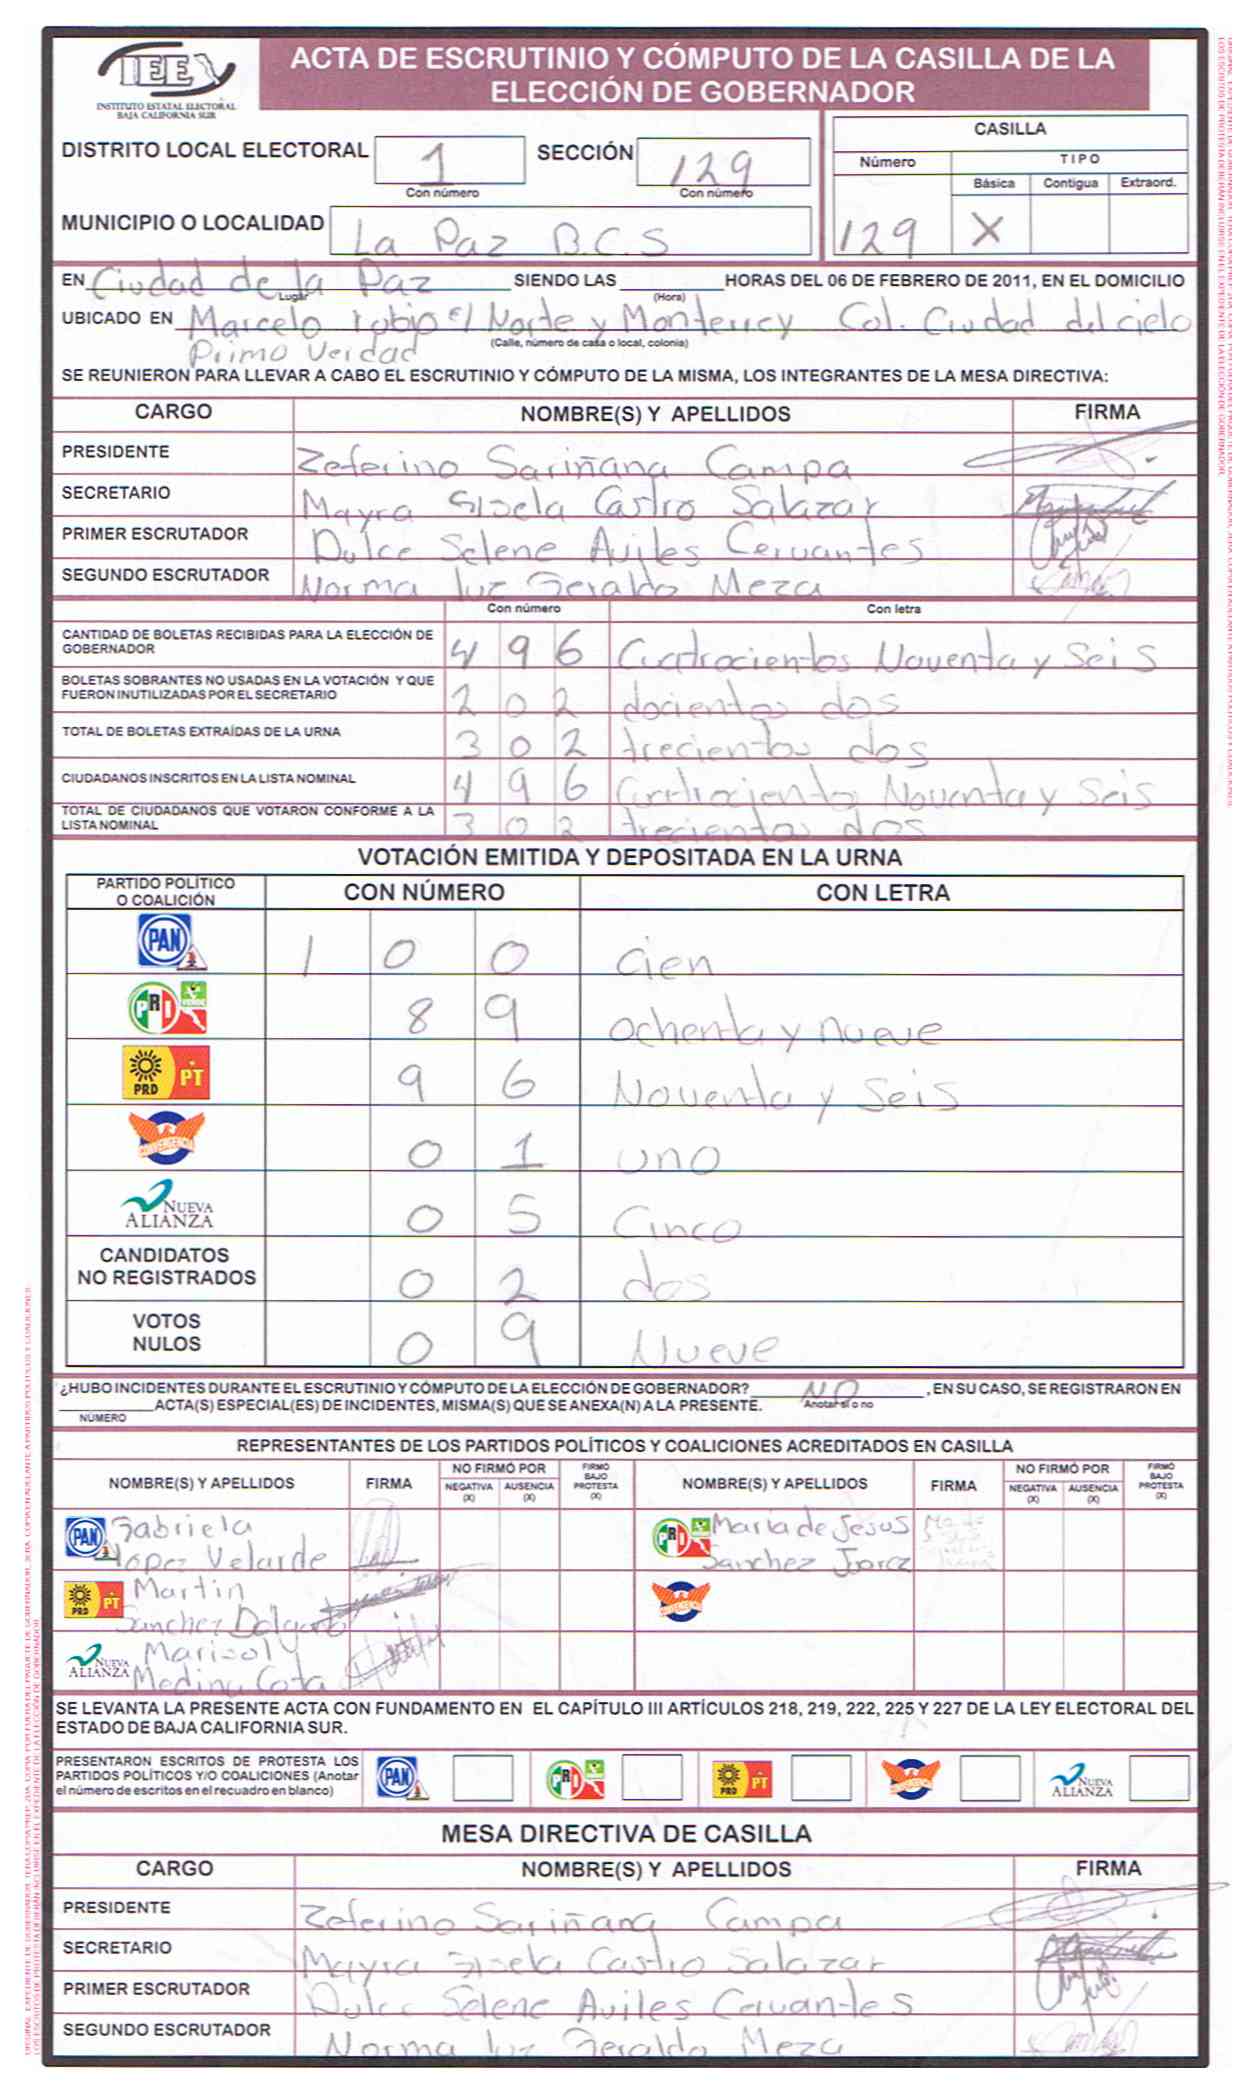 IEE
INSTITUTO ESTATAL ELECTORAL
BAJA CALIFORNIA SUR
ACTA DE ESCRUTINIO Y CÓMPUTO DE LA CASILLA DE LA
ELECCIÓN DE GOBERNADOR
DISTRITO LOCAL ELECTORAL 1 SECCIÓN 129
Con número Con número
MUNICIPIO O LOCALIDAD La Paz B.C.S
CASILLA
Número TIPO
Básica Contigua Extraord.
129 X
EN Ciudad de la Paz SIENDO LAS HORAS DEL 06 DE FEBRERO DE 2011, EN EL DOMICILIO
Lugar (Hora)
UBICADO EN Marcelo Rubio el Norte y Monterrey Col. Ciudad del cielo
(Calle, número de casa o local, colonia)
Primo Verdad
SE REUNIERON PARA LLEVAR A CABO EL ESCRUTINIO Y CÓMPUTO DE LA MISMA, LOS INTEGRANTES DE LA MESA DIRECTIVA:
CARGO NOMBRE(S) Y APELLIDOS FIRMA
PRESIDENTE Zeferino Sariñana Campa
SECRETARIO Mayra Gisela Castro Salazar
PRIMER ESCRUTADOR Dulce Selene Aviles Cervantes
SEGUNDO ESCRUTADOR Norma luz Geraldo Meza
Con número Con letra
CANTIDAD DE BOLETAS RECIBIDAS PARA LA ELECCIÓN DE
GOBERNADOR 4 9 6 Cuatrocientos Noventa y Seis
BOLETAS SOBRANTES NO USADAS EN LA VOTACIÓN Y QUE
FUERON INUTILIZADAS POR EL SECRETARIO 2 0 2 docientos dos
TOTAL DE BOLETAS EXTRAÍDAS DE LA URNA 3 0 2 trecientos dos
CIUDADANOS INSCRITOS EN LA LISTA NOMINAL 4 9 6 Cuatrocientos Noventa y Seis
TOTAL DE CIUDADANOS QUE VOTARON CONFORME A LA
LISTA NOMINAL 3 0 2 trecientos dos
VOTACIÓN EMITIDA Y DEPOSITADA EN LA URNA
PARTIDO POLÍTICO
O COALICIÓN CON NÚMERO CON LETRA
PAN 1 0 0 cien
PRI VERDE 8 9 ochenta y nueve
PRD PT 9 6 Noventa y Seis
CONVERGENCIA 0 1 uno
NUEVA ALIANZA 0 5 Cinco
CANDIDATOS
NO REGISTRADOS 0 2 dos
VOTOS
NULOS 0 9 Nueve
¿HUBO INCIDENTES DURANTE EL ESCRUTINIO Y CÓMPUTO DE LA ELECCIÓN DE GOBERNADOR? NO , EN SU CASO, SE REGISTRARON EN
ACTA(S) ESPECIAL(ES) DE INCIDENTES, MISMA(S) QUE SE ANEXA(N) A LA PRESENTE. Anotar sí o no
NÚMERO
REPRESENTANTES DE LOS PARTIDOS POLÍTICOS Y COALICIONES ACREDITADOS EN CASILLA
NOMBRE(S) Y APELLIDOS FIRMA NO FIRMÓ POR NEGATIVA (X) AUSENCIA (X) FIRMÓ BAJO PROTESTA (X) NOMBRE(S) Y APELLIDOS FIRMA NO FIRMÓ POR NEGATIVA (X) AUSENCIA (X) FIRMÓ BAJO PROTESTA (X)
PAN Gabriela PRI VERDE Maria de Jesus
lopez Velarde Sanchez
PRD PT Martin CONVERGENCIA
Sanchez Delgado
NUEVA ALIANZA Marisol
Medina Cota
SE LEVANTA LA PRESENTE ACTA CON FUNDAMENTO EN EL CAPÍTULO III ARTÍCULOS 218, 219, 222, 225 Y 227 DE LA LEY ELECTORAL DEL
ESTADO DE BAJA CALIFORNIA SUR.
PRESENTARON ESCRITOS DE PROTESTA LOS
PARTIDOS POLÍTICOS Y/O COALICIONES (Anotar
el número de escritos en el recuadro en blanco)
PAN PRI PRD PT CONVERGENCIA NUEVA ALIANZA
MESA DIRECTIVA DE CASILLA
CARGO NOMBRE(S) Y APELLIDOS FIRMA
PRESIDENTE Zeferino Sariñana Campa
SECRETARIO Mayra Gisela Castro Salazar
PRIMER ESCRUTADOR Dulce Selene Aviles Cervantes
SEGUNDO ESCRUTADOR Norma luz Geraldo Meza